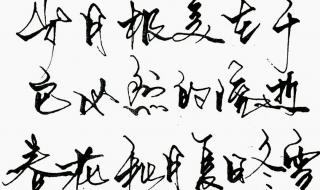 岁月极美在于
它必然的流逝
春花秋月夏日冬雪